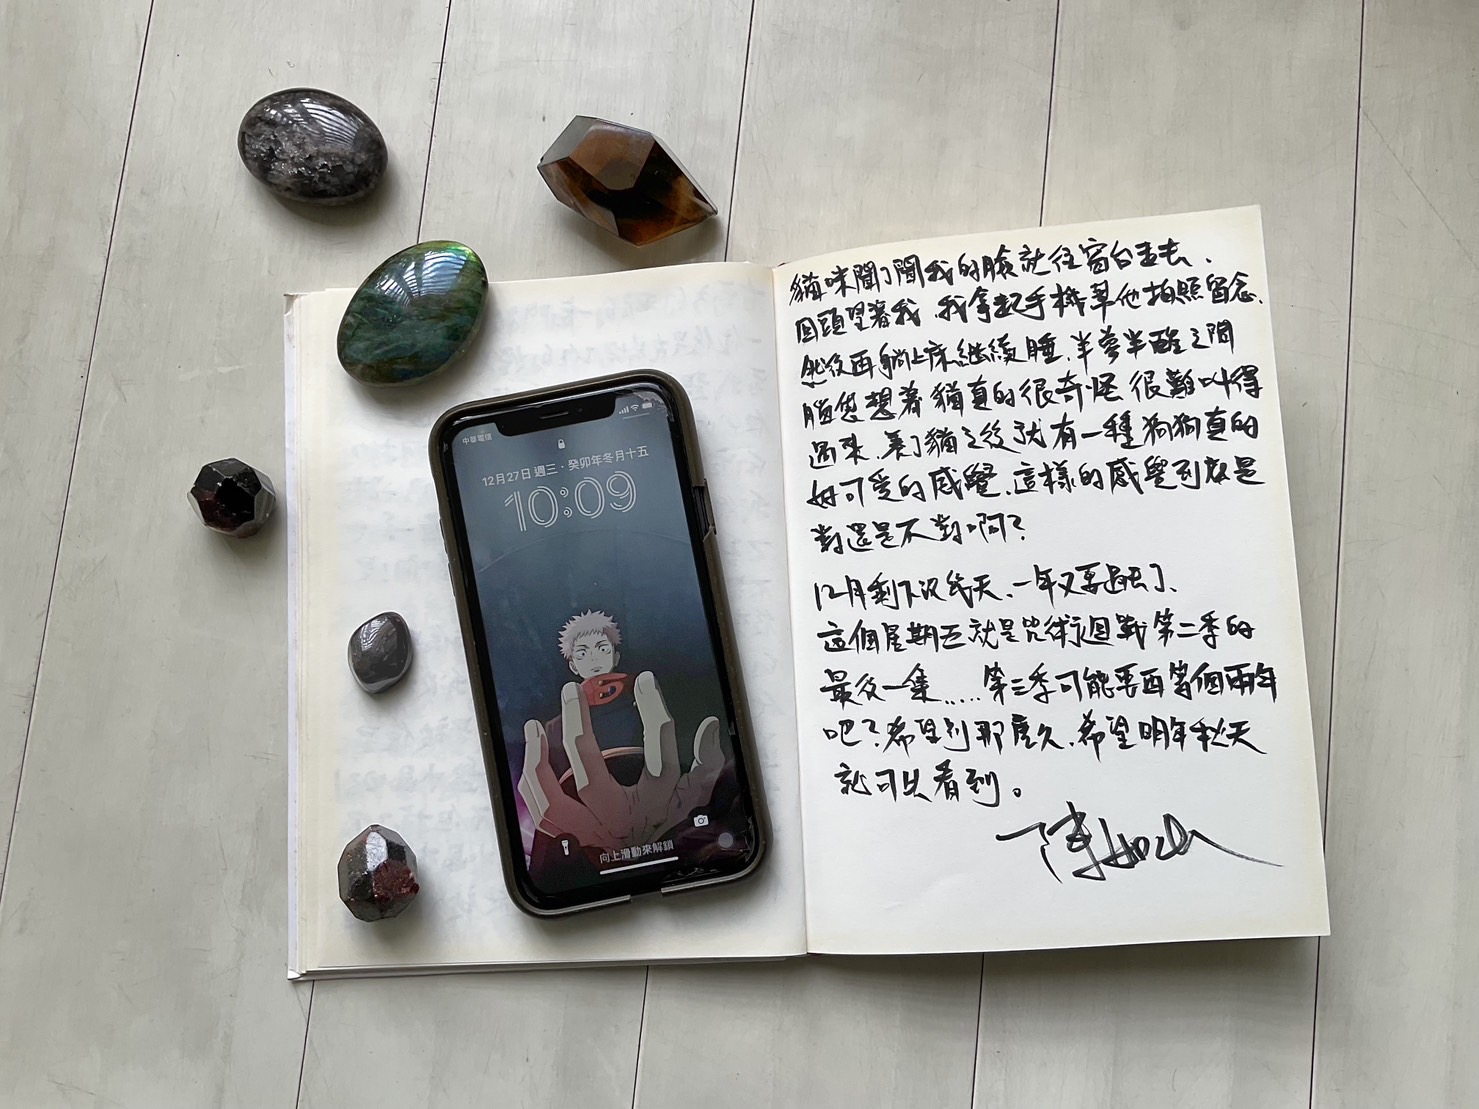 中華電信
12月27日 週三・癸卯年冬月十五
10:09
向上滑動來解鎖
貓咪聞了聞我的臉就往窗台走去、
回頭望著我、我拿起手機幫他拍照留念、
然後再躺上床繼續睡、半夢半醒之間
腦袋想著貓真的很奇怪 很難叫得
過來、養了貓之後就有一種狗狗真的
好可愛的感覺、這樣的感覺到底是
對還是不對啊?
12月剩下沒幾天、一年又要過去了、
這個星期五就是咒術迴戰第二季的
最後一集.....第三季可能要再等個兩年
吧?希望別那麼久、希望明年秋天
就可以看到。